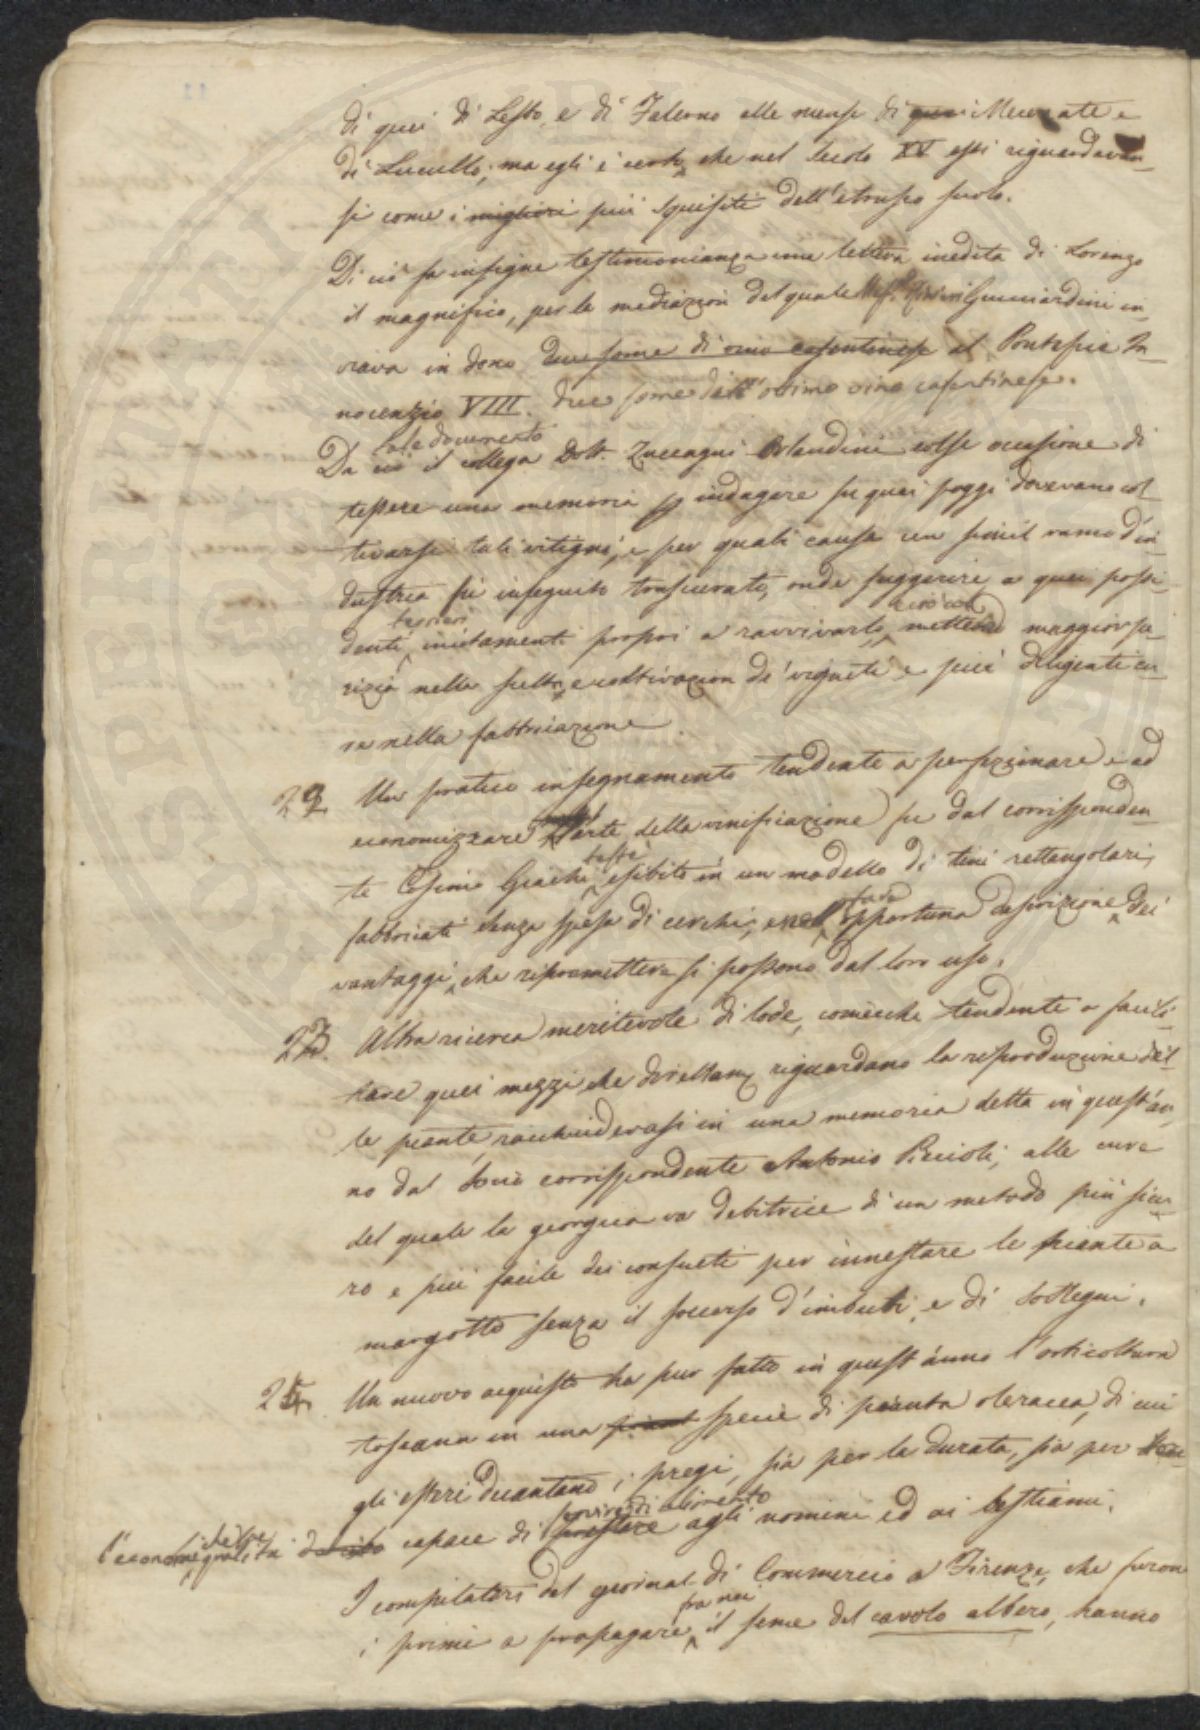 di quei di Lesbo, e di Falerno alle mense di quei Mecenate e
di Lucullo; ma egli è certo, che nel secolo XV essi riguardavan-
si come i migliori più squisiti dell'etrusco suolo.
Di ciò fa insigne testimonianza una lettera inedita di Lorenzo
il magnifico, per la mediazione del quale Guicciardini in-
viava in dono due some di vino casentinese al Pontefice In-
nocenzio VIII. due some dell'ottimo vino casentinese.
tale documento
Da ciò il collega Dott. Zuccagni Orlandini colse occasione di
tessere una memoria per indagare su quei poggi dovevano col
tivarsi tali vitigni, e per quali cause un simil ramo d'in-
dustria fu in seguito trascurato, onde suggerire a quei possi-
denti incitamenti propri a ravvivarlo, mettendo maggior pe-
rizia nella scelta, e coltivazion de' vigneti e più diligente cu-
ra nella fabbricazione.
22 Un pratico insegnamento tendente a perfezionare e ad
economizzare l'arte della vinificazione fu dal corrisponden-
te Cosimo Giachi esibito in un modello di tini rettangolari,
fabbricati senza spesa di cerchi, opportuna descrizione dei
vantaggi, che ripromettere si possono dal loro uso.
23. Altra ricerca meritevole di lode, comecche tendente a facili-
tare quei mezzi che direttam. riguardano la reporoduzione del-
le piante, racchiudevasi in una memoria detta in quest'an-
no dal Socio corrispondente Antonio Piccioli; alle cure
del quale la georgica va debitrice di un metodo più sicu-
ro e più facile dei consueti per innestare le piante a
margotto senza il soccorso d'imbuti, e di sostegni.
24. Un nuovo acquisto ha pur fatto in quest'anno l'orticoltura
toscana in una specie di pianta oleracea, di cui
gli esteri decantano i pregi, sia per la durata, sia per
servire di alimento
l'economica qualità capace di prestare agli uomini ed ai bestiami.
I compilatori del giornal di Commercio a Firenze, che furon
fra noi
i primi a propagare il seme del cavolo albero, hanno